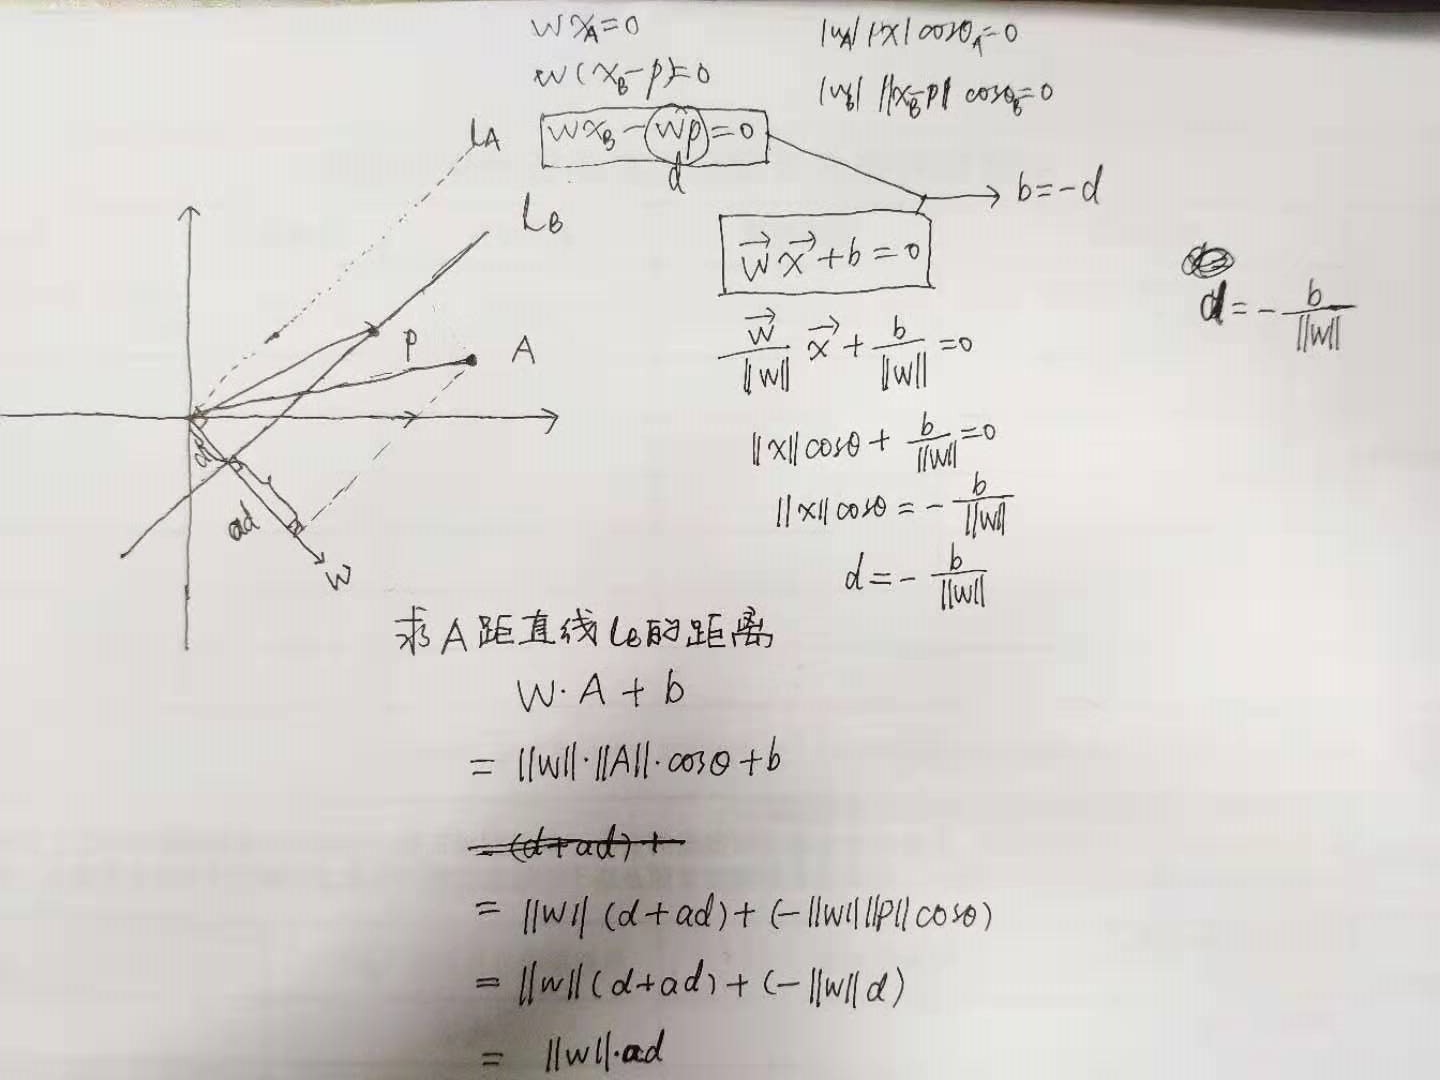 wx_A=0
w(x_B-p)=0
wx_B-wp=0
d
|w_A| |x| cosθ_A=0
|w_B| ||x_B-p|| cosθ_B=0
b=-d
w⃗ x⃗+b=0
w⃗/||w|| x⃗+b/||w||=0
||x||cosθ+b/||w||=0
||x||cosθ=-b/||w||
d=-b/||w||
d=-b/||w||
l_A
l_B
P
A
d
ad
w
求A距直线l_B的距离
W·A+b
=||w||·||A||·cosθ+b
=(d+ad)+
=||w||(d+ad)+(-||w||||P||cosθ)
=||w||(d+ad)+(-||w||d)
=||w||·ad